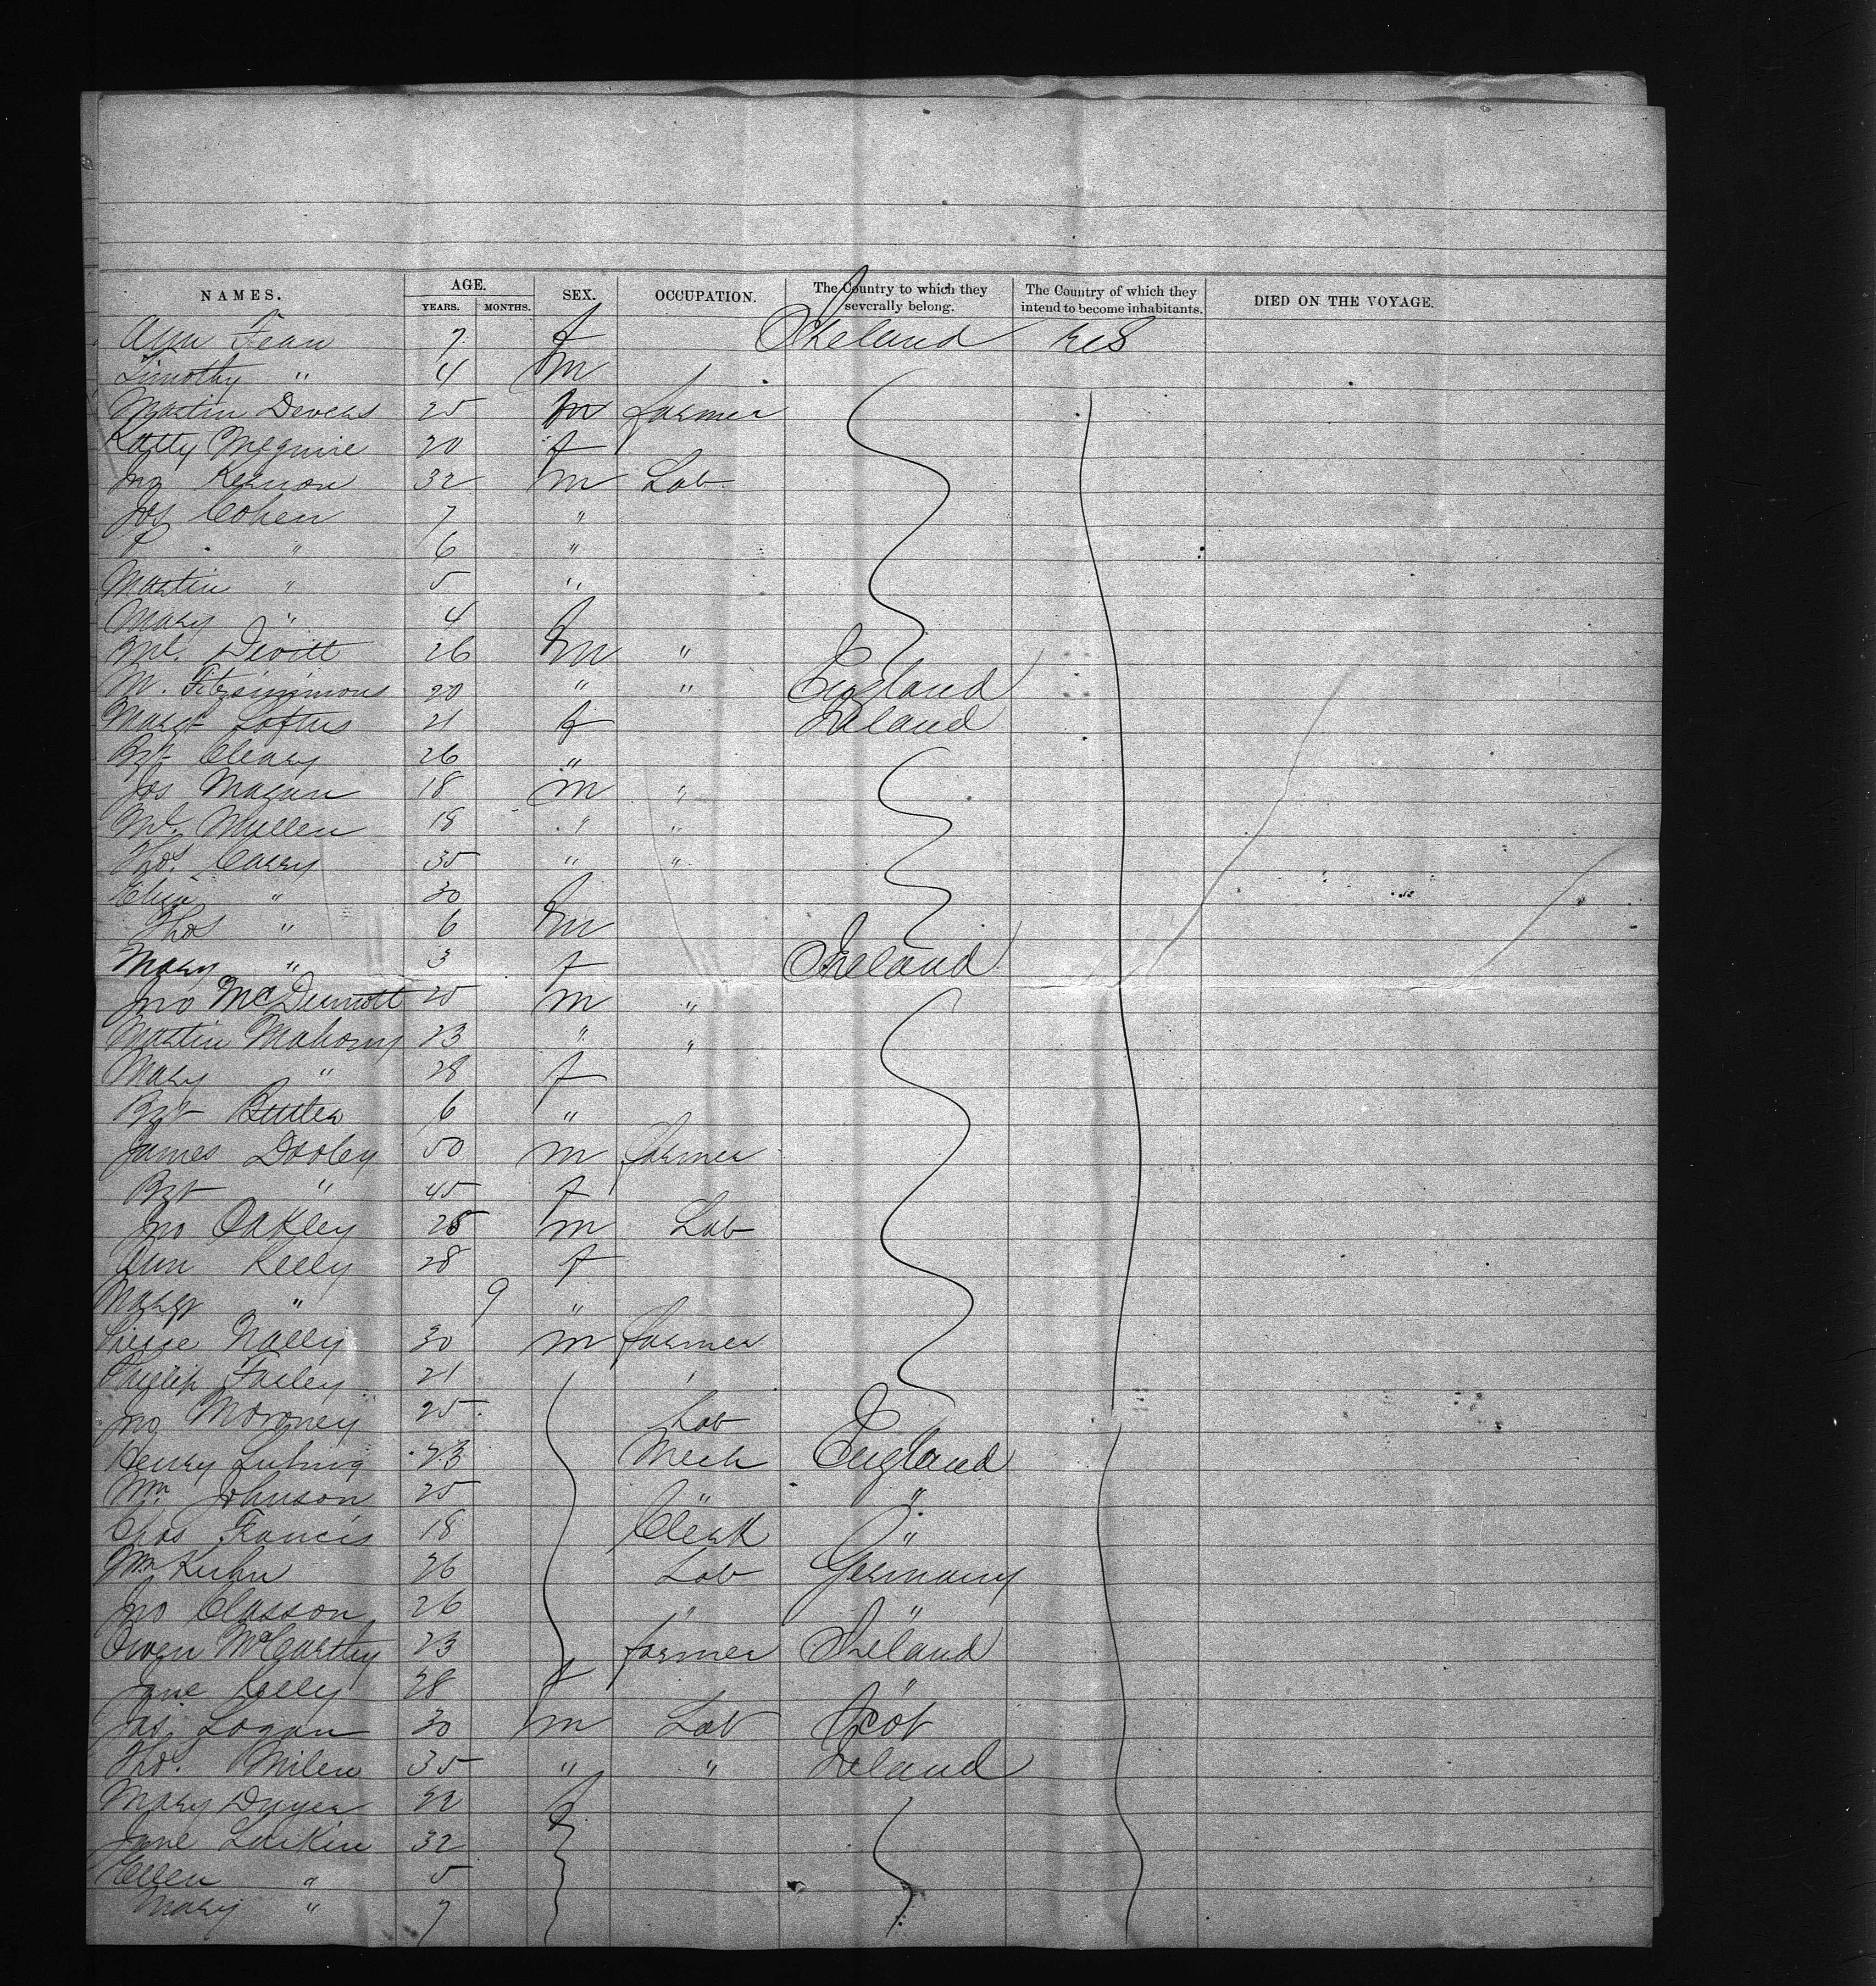 NAMES. AGE. SEX. OCCUPATION. The Country to which they severally belong. The Country of which they intend to become inhabitants. DIED ON THE VOYAGE.
YEARS. MONTHS.
Ann Fean 7 f Ireland US
Timothy " 4 m
Martin Devers 25 m farmer
Katty McGuire 20 f
Jno Kernon 32 m Lab
Jos Cohen 7 "
P " 6 "
Martin " 5 "
Mary " 4 f
Ml. Divitt 26 m "
M. Fitzsimmons 20 " " England
Margt Loftus 21 f Ireland
Bgt Cleary 26 "
Jos Magan 18 m "
Ml. Mullen 18 " "
Thos. Carry 35 " "
Eliza " 30
Thos " 6 m
Mary " 3 f Ireland
Jno McDermott 25 m "
Martin Mahony 23 " "
Mary " 28 f
Bgt Butler 6 "
James Dooley 50 m farmer
Bgt " 45 f
Jno Oakley 28 m Lab
Ann Kelly 28 f
Margt " 9 "
Nally 30 m farmer
Philip Farley 21 "
Jno Moroney 25 Lab
Henry 23 Mech England
Wm Johnson 25 " "
Chas Francis 18 Clerk "
Wm Kuhn 26 Lab Germany
Jno Classon 26 " "
Owen McCarthy 23 farmer Ireland
Jane Kelly 28 f "
Jas. Logan 30 m Lab Scot
Thos. Milen 35 " " Ireland
Mary Dwyer 22 f
Jane Larkin 32
Ellen " 5
Mary " 7